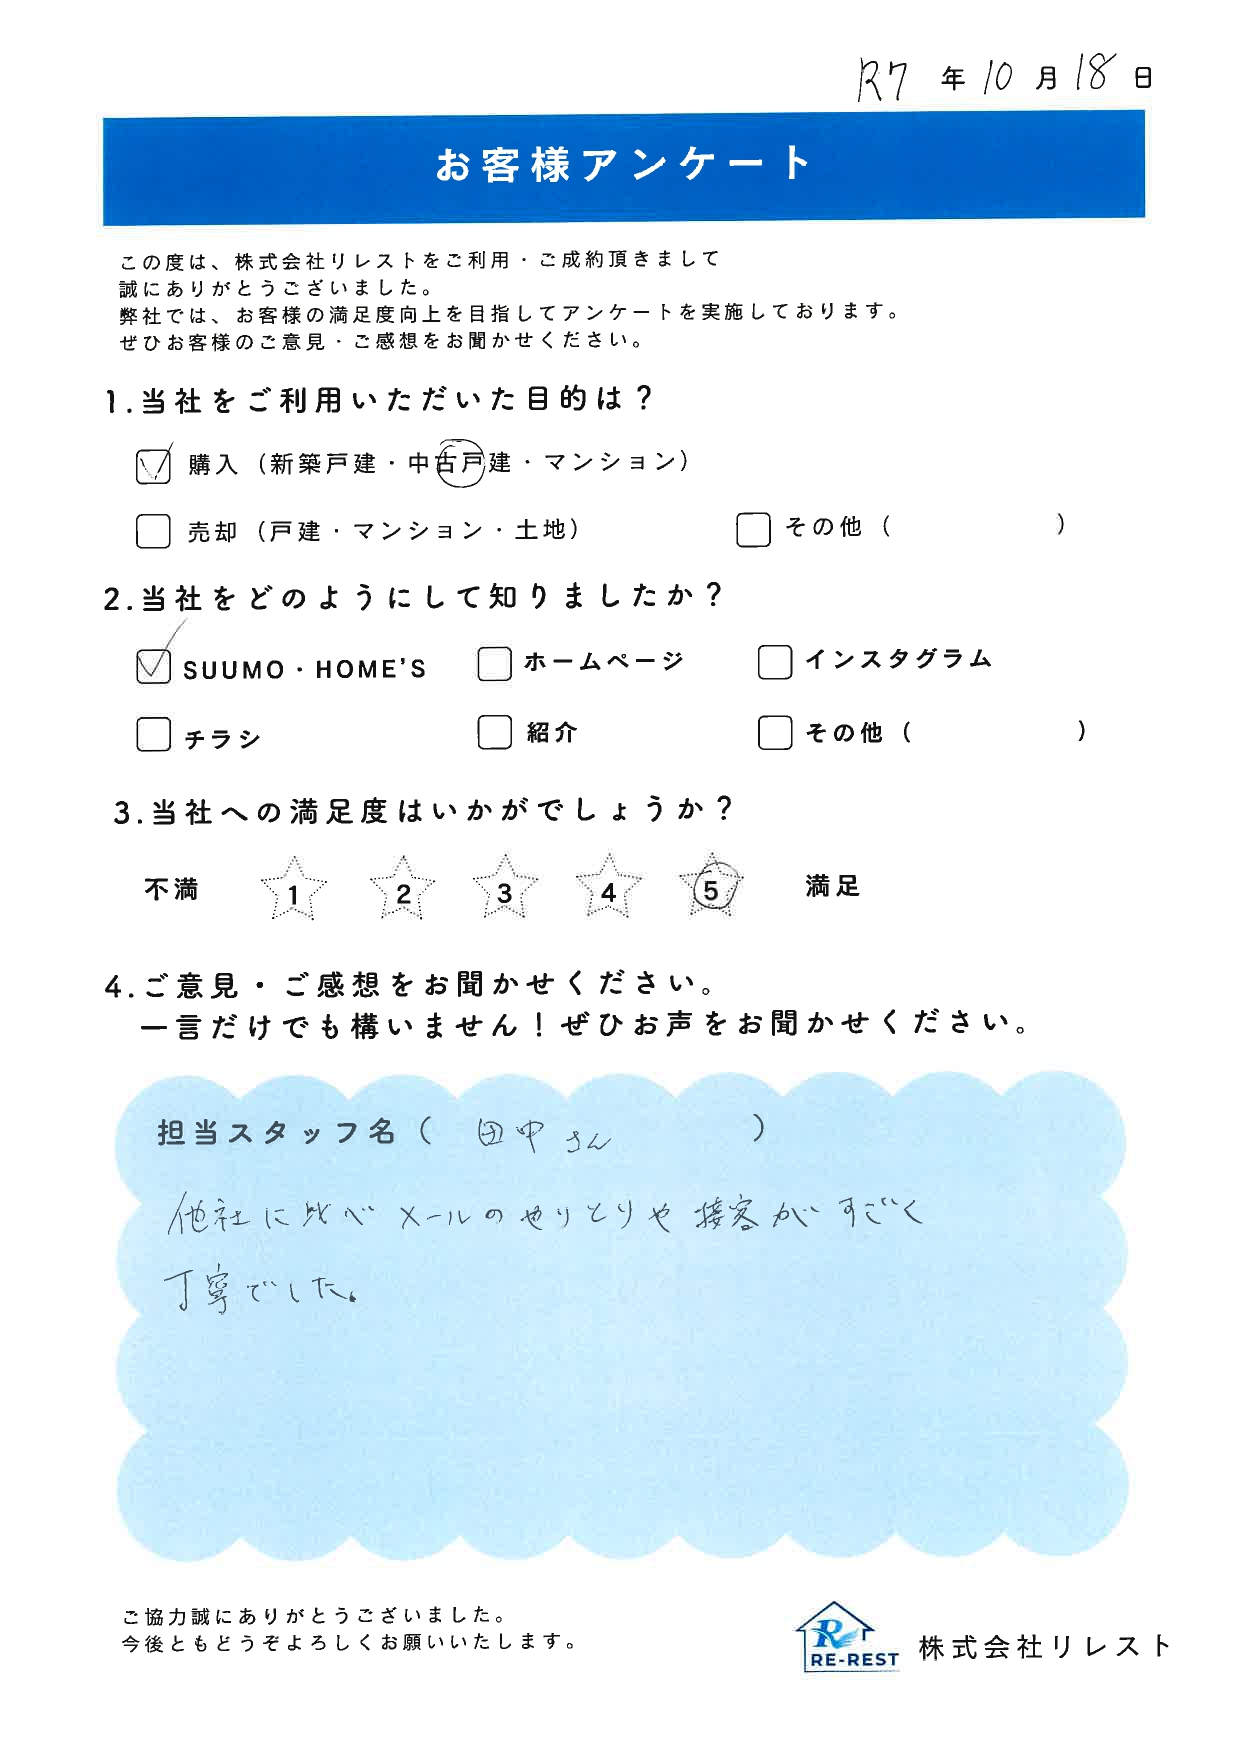 R7 年 10 月 18 日
お客様アンケート
この度は、株式会社リレストをご利用・ご成約頂きまして
誠にありがとうございました。
弊社では、お客様の満足度向上を目指してアンケートを実施しております。
ぜひお客様のご意見・ご感想をお聞かせください。
1.当社をご利用いただいた目的は？
購入（新築戸建・中古戸建・マンション）
売却（戸建・マンション・土地） その他（ ）
2.当社をどのようにして知りましたか？
SUUMO・HOME'S ホームページ インスタグラム
チラシ 紹介 その他（ ）
3.当社への満足度はいかがでしょうか？
不満 1 2 3 4 5 満足
4.ご意見・ご感想をお聞かせください。
一言だけでも構いません！ぜひお声をお聞かせください。
担当スタッフ名（ 田中さん ）
他社に比べメールのやりとりや接客がすごく
丁寧でした。
ご協力誠にありがとうございました。
今後ともどうぞよろしくお願いいたします。
R RE-REST 株式会社リレスト